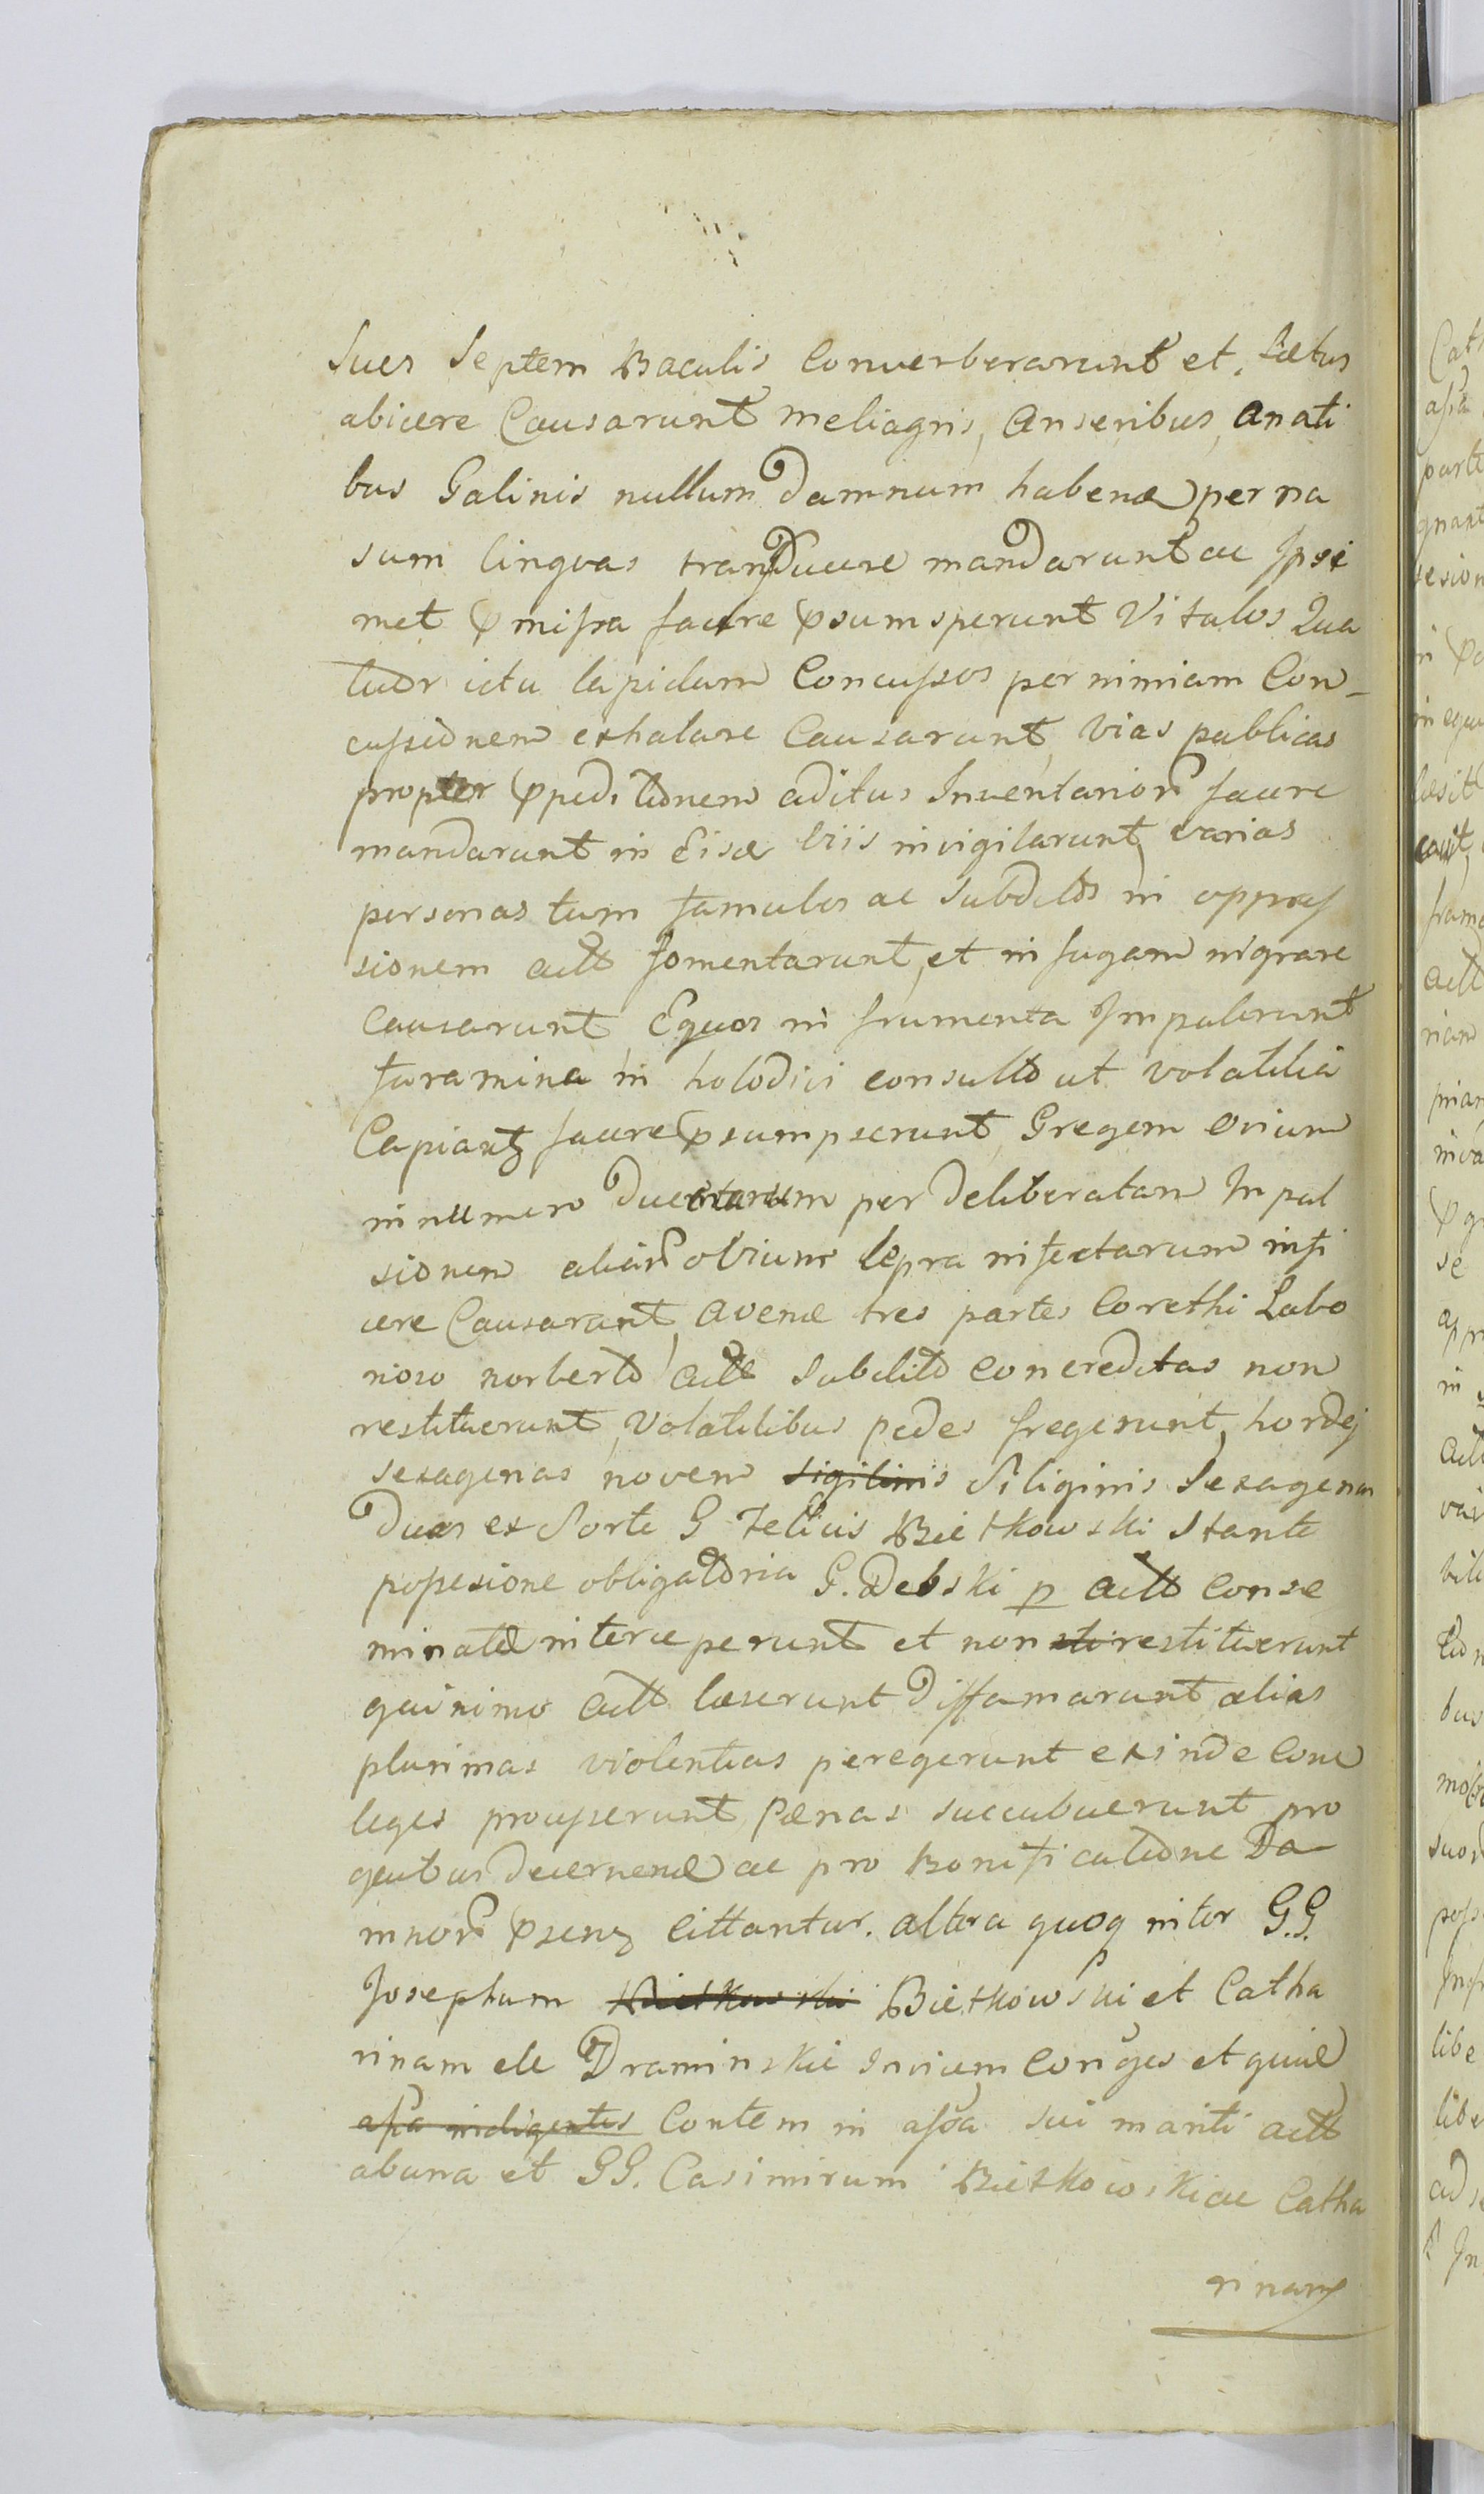 Sues Septem Baculis Converberarunt et. Fætus
abicere Causarunt meliagris, Anseribus, Anati
bus Galinis nullum damnum habend per na
sum linguas transducere mandarunt ac Ipsi
met præmissa facere præsumsperunt Vitulos Qua
tuor ictu lapidum Concussos per nimiam Con-
cussionem exhalare Causarunt, Vias publicas
propter præpeditionem aditus Inventarior facere
mandarunt in Eisd viis invigilarunt, varias
personas tum famulos ac Subditos in oppres
sionem actt fomentarunt, et in fugam migrare
Causarunt, Equos in frumenta Impulerunt
foramina in holodici consulto ut volatilia
Capiantz facere præsumpserunt, Gregem ovium
in numero Ducentarum per deliberatam Inpul
sionem aliar ovium lepra infectarum infi
cere Causarunt, avenæ tres partes Corethi Labo
rioso norberto actt Subdito Concreditas non
restituerunt, Volatilibus pedes fregerunt, hordej
sexagenas novem sigilinis Siliginis Sexagenas
Duas ex Sorte G Felicis Bietkowski Stante
possesione obligatoria G. Debski p actt Conse
minatas interceperunt et non sti restituerunt
quinimo actt læserunt Diffamarunt, alias
plurimas violentias peregerunt exinde Con
leges processerunt, Pænas succubuerunt pro
quibus decernend ac pro Bonificatione Da
mnor præsenz Cittantur. altera quoq inter G.G.
Josephum Bietkowski Bietkowski et Catha
rinam de Draminskie Invicem Conjges et quid
assa indigentes Contem in assa sui mariti actt
abuna et GG. Casimirum Bietkowski ac Catha
rinam